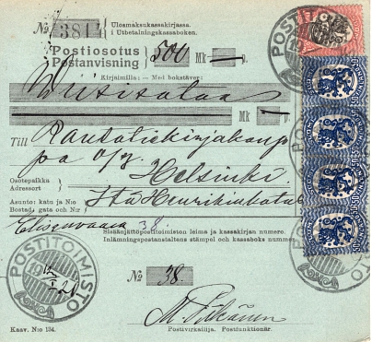 No 381 Ulosmaksukassakirjassa.
i Utbetalningskassaboken.
Postiosotus
Postanvisning 500 Mk — p.
Kirjaimilla: — Med bokstäver:
Viisisataa
Mk — p.
Till Rautatiekirjakaup
pa o/y.
Osotepaikka
Adressort Helsinki
Asunto: katu ja N:o
Bostad, gata och N:r Itä Henrikinkatu
Elisenvaara 38
Sisäänjättöpostitoimiston leima ja kassakirjan numero.
Inlämningspostanstaltens stämpel och kassaboks nummer.
POSTITOIMISTO
20
No 38.
Kaav. N:o 134.
Postivirkailija. Postfunktionär.